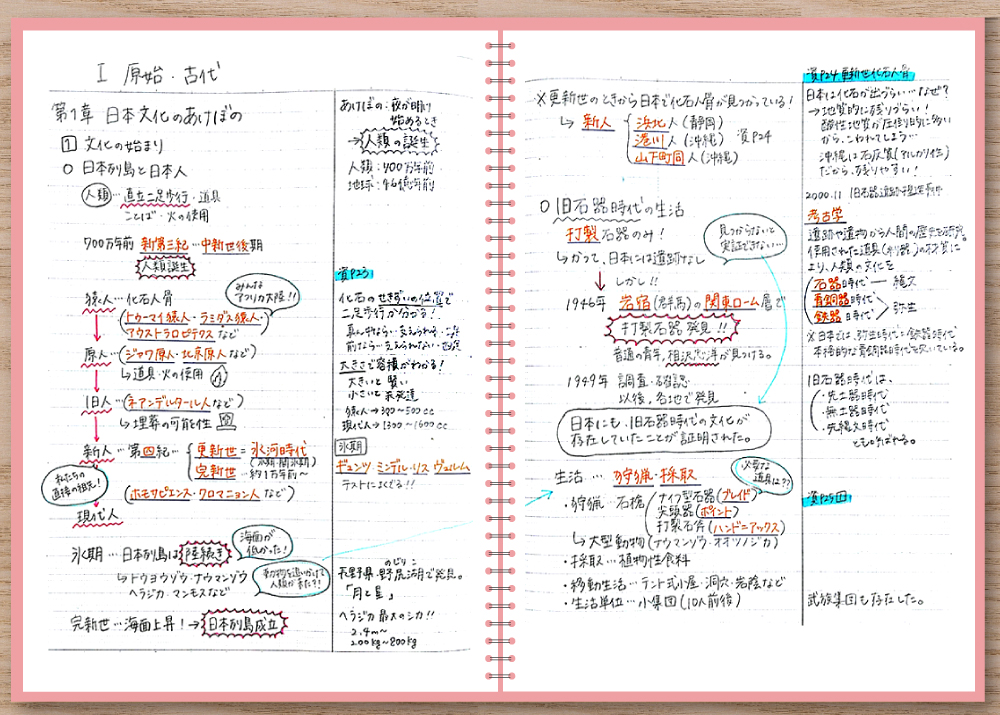 I 原始・古代
第1章 日本文化のあけぼの
1 文化の始まり
○ 日本列島と日本人
人類…直立二足歩行・道具
ことば・火の使用
700万年前 新第三紀…中新世後期
人類誕生
猿人…化石人骨
みんな
アフリカ大陸!!
(トゥーマイ猿人・ラミダス猿人・
アウストラロピテクス など)
原人…(ジャワ原人・北京原人 など)
↳道具・火の使用
旧人…(ネアンデルタール人など)
↳埋葬の可能性
新人…第四紀…更新世=氷河時代
(氷期・間氷期)
完新世…約1万年前〜
私たちの
直接の祖先!
(ホモサピエンス・クロマニョン人 など)
現代人
氷期…日本列島は陸続き
海面が
低かった!
↳トウヨウゾウ・ナウマンゾウ
ヘラジカ・マンモスなど
動物を追いかけて
人類が来た?!
完新世…海面上昇!→日本列島成立
あけぼの:夜が明け
始めるとき
→人類の誕生
人類:700万年前
地球:46億年前
資P23
化石のせきずいの位置で
二足歩行か分かる!
真ん中なら…支えられる
前なら…支えられない
大きさで容積がわかる!
大きいと 賢い
小さいと 未発達
猿人→300〜500cc
現代人→1300〜1600cc
氷期
ギュンツ・ミンデル・リス・ヴュルム
テストによくでる!!
のじりこ
長野県・野尻湖で発見。
「月と星」
ヘラジカ 最大のシカ!!
2.4m〜
200kg〜800kg
※更新世のときから日本で化石人骨が見つかっている!
↳新人 浜北人(静岡)
港川人(沖縄) 資P24
山下町洞人(沖縄)
○旧石器時代の生活
打製石器のみ!
↳かつて、日本には遺跡なし
見つからないと
実証できない…
↓しかし!!
1946年 岩宿(群馬)の関東ローム層で
打製石器 発見!!
普通の青年、相沢忠洋が見つける。
1949年 調査・確認
以後、各地で発見
日本にも、旧石器時代の文化が
存在していたことが証明された。
生活…狩猟・採取
必要な
道具は??
・狩猟…石槍 ナイフ型石器(ブレイド)
尖頭器(ポイント)
打製石斧(ハンドニアックス)
↳大型動物(ナウマンゾウ・オオツノジカ)
・採取…植物性食料
・移動生活…テント式小屋・洞穴・岩陰など
・生活単位…小集団(10人前後)
資P24 更新世化石人骨
日本は化石が出づらい…なぜ?
→地質的に残りづらい!
酸性地質が圧倒的に多い
から、こわれてしまう…
沖縄は石灰質(アルカリ性)
だから、残りやすい!
2000.11 旧石器遺跡捏造事件
考古学
遺跡や遺物から人間の歴史を研究。
使用された道具(利器)の材質に
より、人類の文化を
石器時代 縄文
青銅器時代
鉄器時代 弥生
※日本では、弥生時代=鉄器時代
本格的な青銅器時代を欠いている。
旧石器時代は、
・先土器時代
・無土器時代
・先縄文時代
ともよばれる。
資P25回
武族集団も存在した。